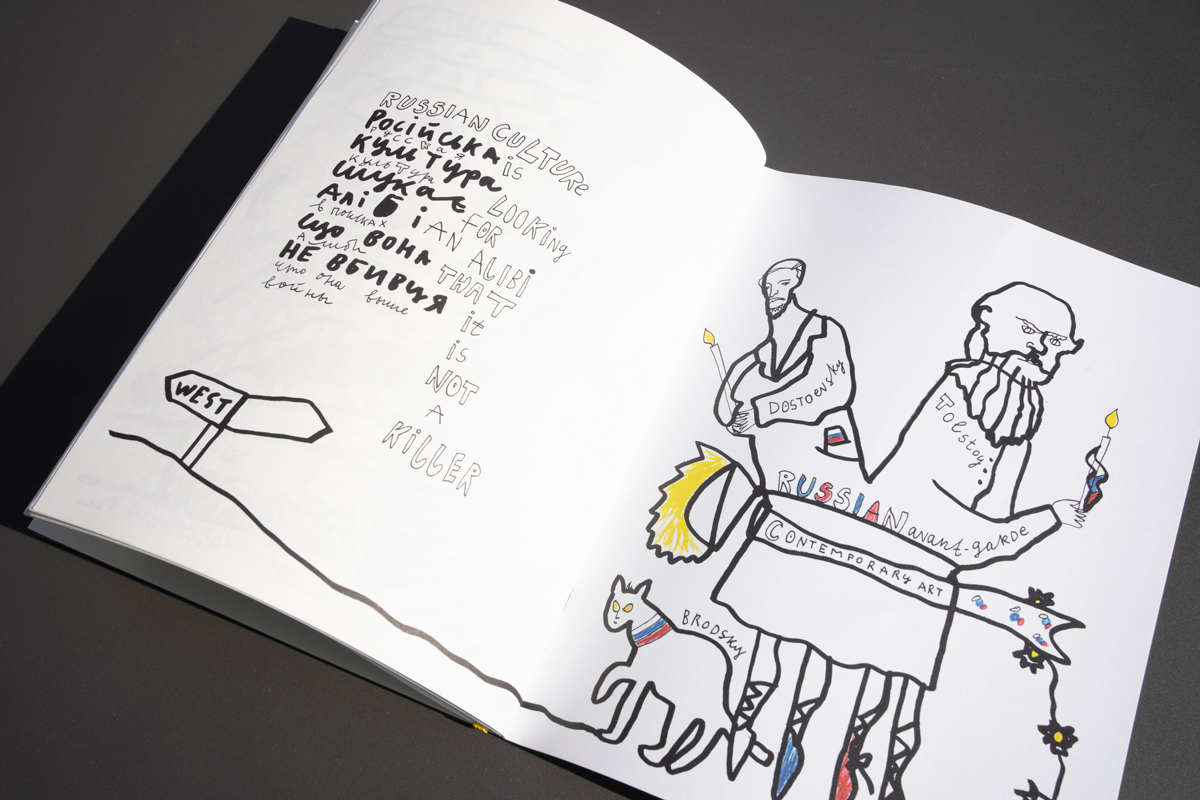 RUSSIAN CULTURE
РОСІЙСЬКА is
русская
КУЛЬТУРА
культура
шукає LOOKing
Алібі FOR
в поисках AN ALIBI
що вона THAT
алиби
НЕ ВБИВЦЯ it
что она выше is
войны
NOT
A
KiLLER
WEST
DOSTOEVSKY
Tolstoj
RUSSIAN avant-garde
CONTEMPORARY ART
BRODSKY